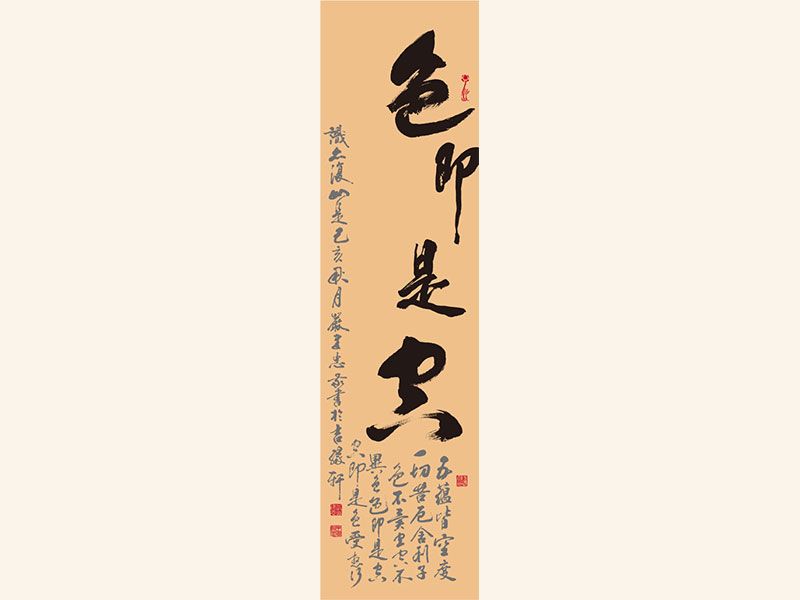 色即是空
五蘊皆空度
一切苦厄舍利子
色不異空空不
異色色即是空
空即是色受想行
識亦復如是己亥秋月嚴 惠 書於吉 軒